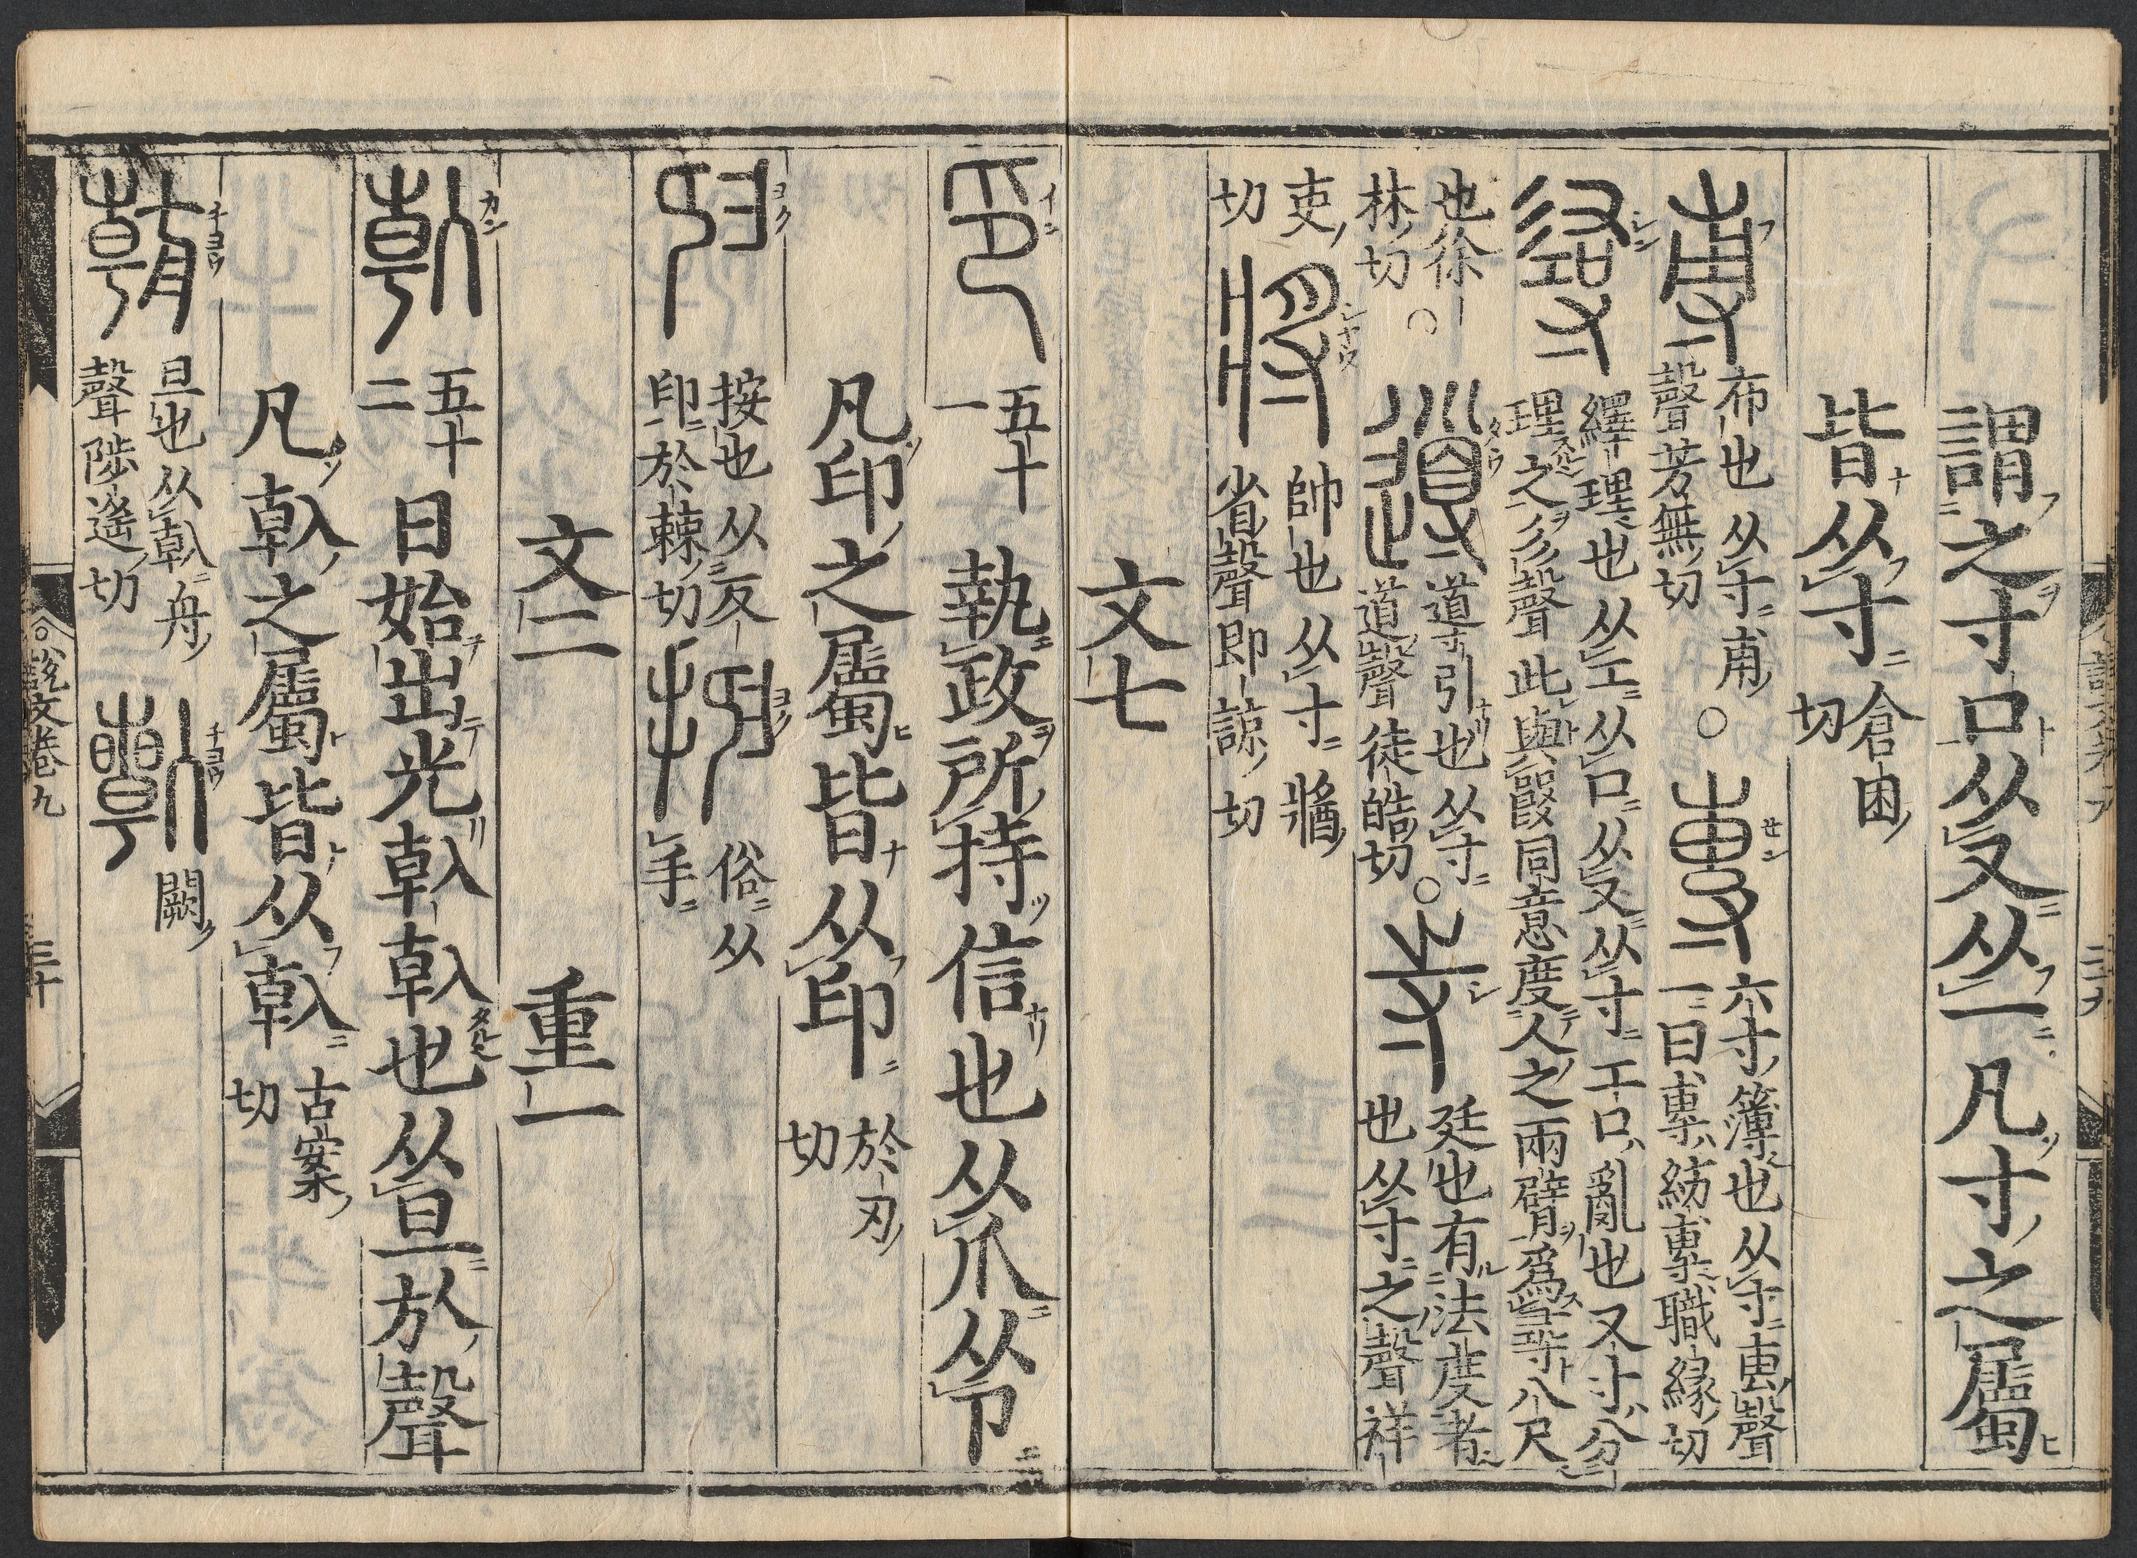 謂之寸口从又从一凡寸之屬
皆从寸倉困切
布也从寸甫聲芳無切○
六寸簿也从寸叀聲一曰專紡專職緣切
繹理也从工从口从又从寸工口亂也又寸分理之彡聲此與𤕦同意度人之兩臂爲尋八尺也徐林切○
道引也从寸道聲徒皓切○
廷也有法度者也从寸之聲祥吏切
帥也从寸醬省聲即諒切
文七
五十一
執政所持信也从爪从卪
凡印之屬皆从印於刃切
按也从反印於棘切
俗从手
文二 重一
五十二
日始出光倝倝也从旦㫃聲
凡倝之屬皆从倝古案切
旦也从倝舟聲陟遙切
闕
說文卷九 三十